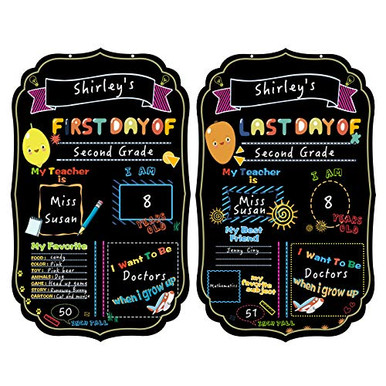 Shirley's
FIRST DAY OF
Second Grade
My Teacher
is
Miss
Susan
I AM
8
YEARS
OLD
My Favorite
FOOD: candy
COLOR: Pink
TOY: Pink bear
ANIMALS: Dog
GAME: Head up game
STORY: Runaway Bunny
CARTOON: Cat and mouse
I Want To Be
Doctors
when I grow up
50
INCH TALL
Shirley's
LAST DAY OF
Second Grade
My Teacher
is
Miss
Susan
I AM
8
YEARS
OLD
My Best
Friend
Jenny Ciny
my
favorite
subject
Mathematics
I Want To Be
Doctors
when I grow up
51
INCH TALL